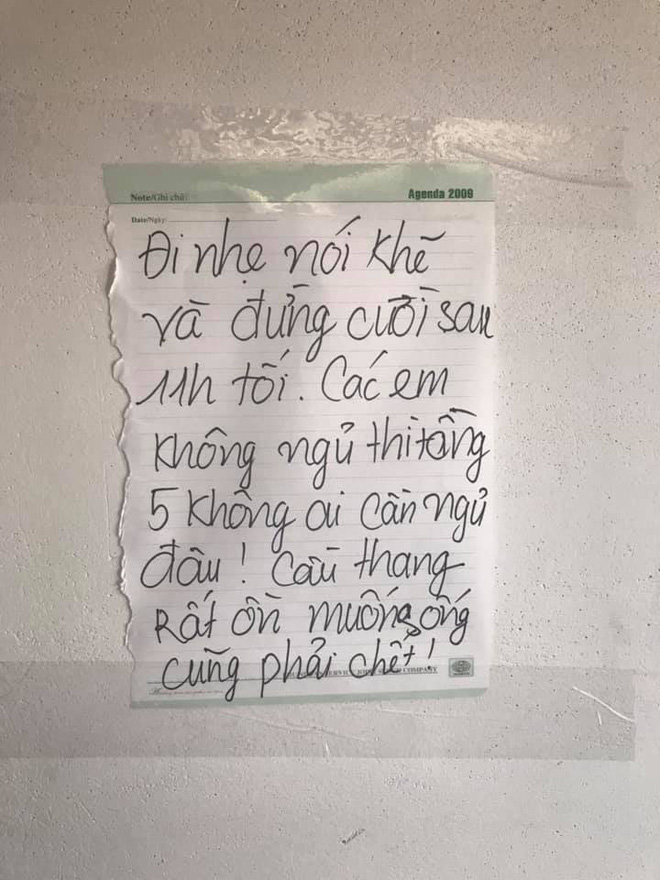 Note/Ghi chú:
Agenda 2009
Date/Ngày:
Đi nhẹ nói khẽ
và đừng cười sau
11h tối. Các em
không ngủ thì tầng
5 không ai cần ngủ
đâu! Cầu thang
Rất ồn muốn sống
cũng phải chết!
COMPANY